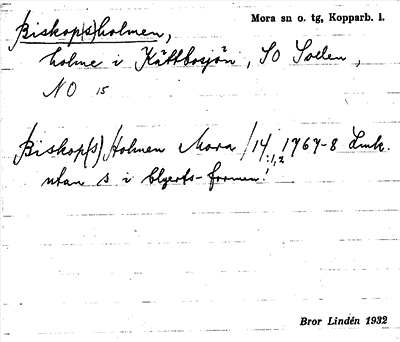 Mora sn o. tg, Kopparb. l.
Biskop(s)holmen,
holme i Kättbosjön, SO Solen,
NO 15
Biskop(s) Holmen Mora /14 1/2 1767-8 Lmk.
utan s i blyerts-formen!
Bror Lindén 1932